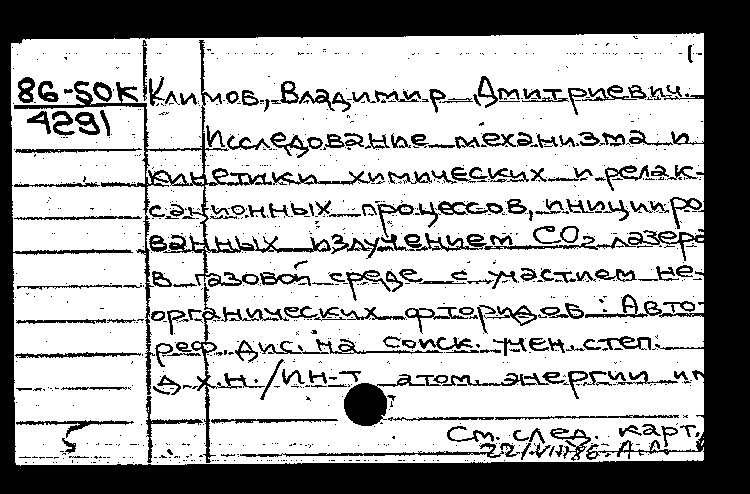 86-50К Климов, Владимир Дмитриевич.
4291
Исследование механизма и
кинетики химических и релак-
сационных процессов, иницииро
ванных излучением CO₂ лазера
в газовой среде с участием не-
органических фторидов : Авто-
реф. дис. на соиск. учен. степ.
д.х.н. / Ин-т атом. энергии им
См. след. карт.
22/VIII86. А.Л.